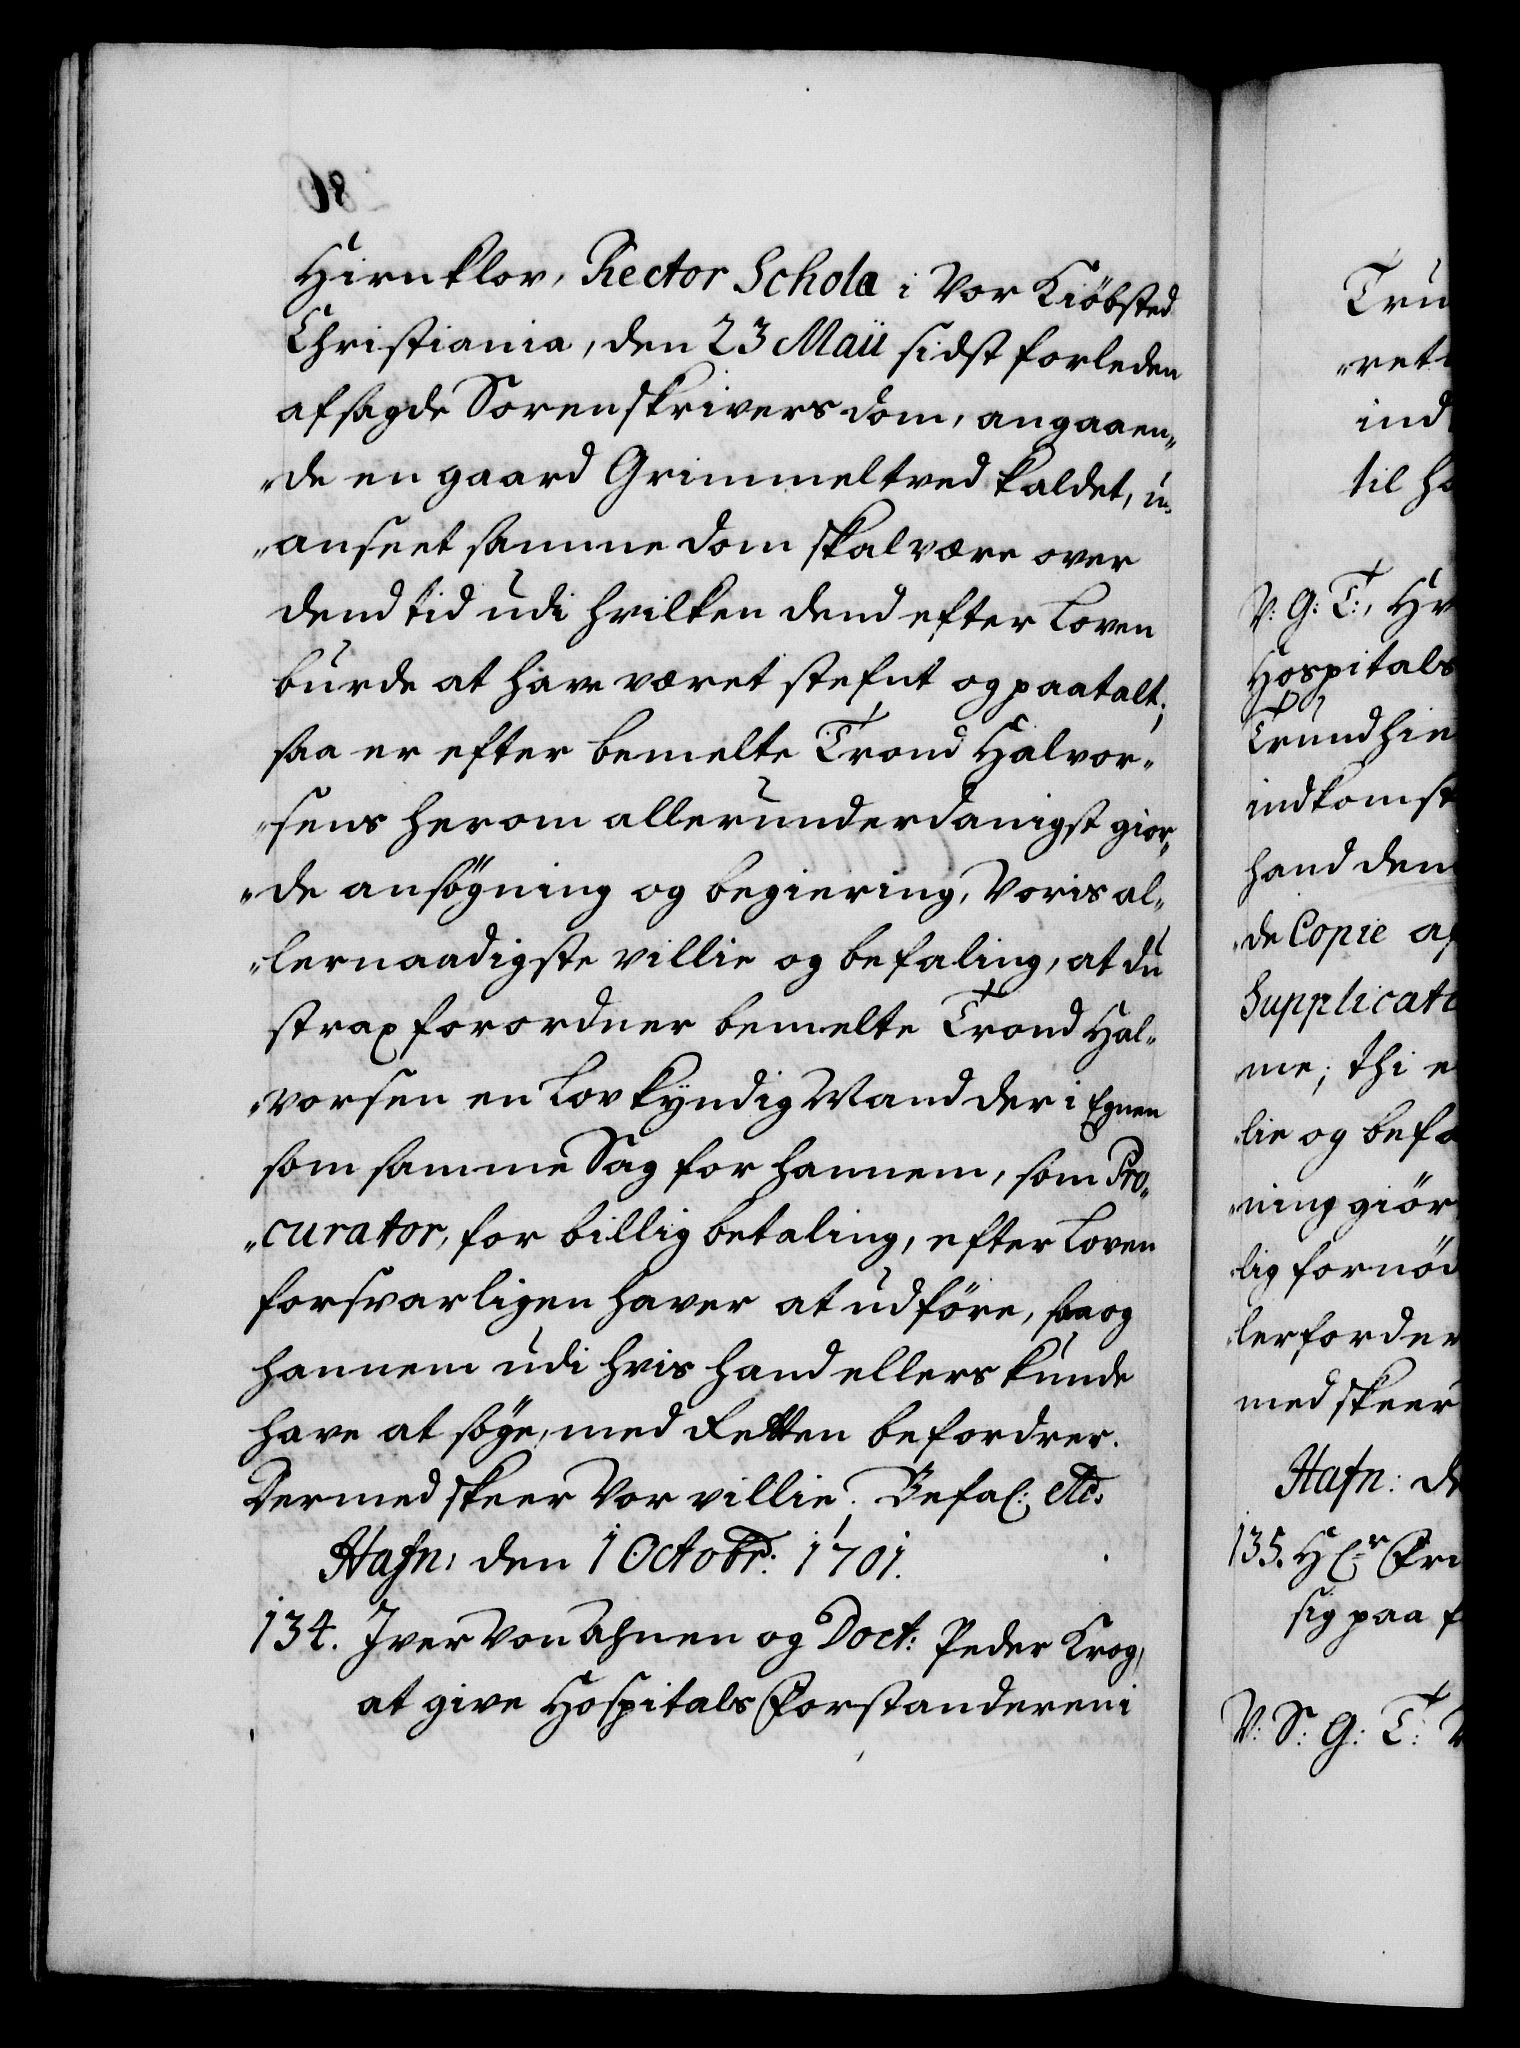 Hiernklov, Rector Schola i Vor Kiöbsted
Christiania, den 23 Maii sidst forleden
afsagde Sorenskrivers dom, angaaen„
„de en gaard Grimmeltved kaldet, u„
„anseet samme dom skal være over
dend tid udi hvilken dend efter Loven
burde at have været stefnt og paatalt;
saa er efter bemelte Trond Halvor„
„sens herom allerunderdanigst gior„
„de ansøgning og begiering, Voris al„
„lernaadigste villie og befaling, at du
strax forordner bemelte Trond Hal„
„vorsen en Lovkyndig Mand der i Egnen
som samme Sag for hannem, som Pro„
„curator, for billig betaling, efter Loven
forsvarligen haver at udføre, saa og
hannem udi hvis hand ellers kunde
have at søge, med Retten befordrer.
Dermed skeer Vor villie. Befal: etc:
Hafn: den 1 Octobr: 1701.
134. Iver Von Ahnen og Doct: Peder Krog,
at give Hospitals Forstanderen i
Tru
„ret
ind
til h
V: G: T:, Hr
Hospitals
Trundhie
indkomst
hand dem
„de Copie af
Supplicati
„me; thi e
„lie og befa
„ning giör
„lig fornöd
„ler forder
med skeer
Hafn: d
135. Hr Fri
sig paa f
V: S: G: T: V